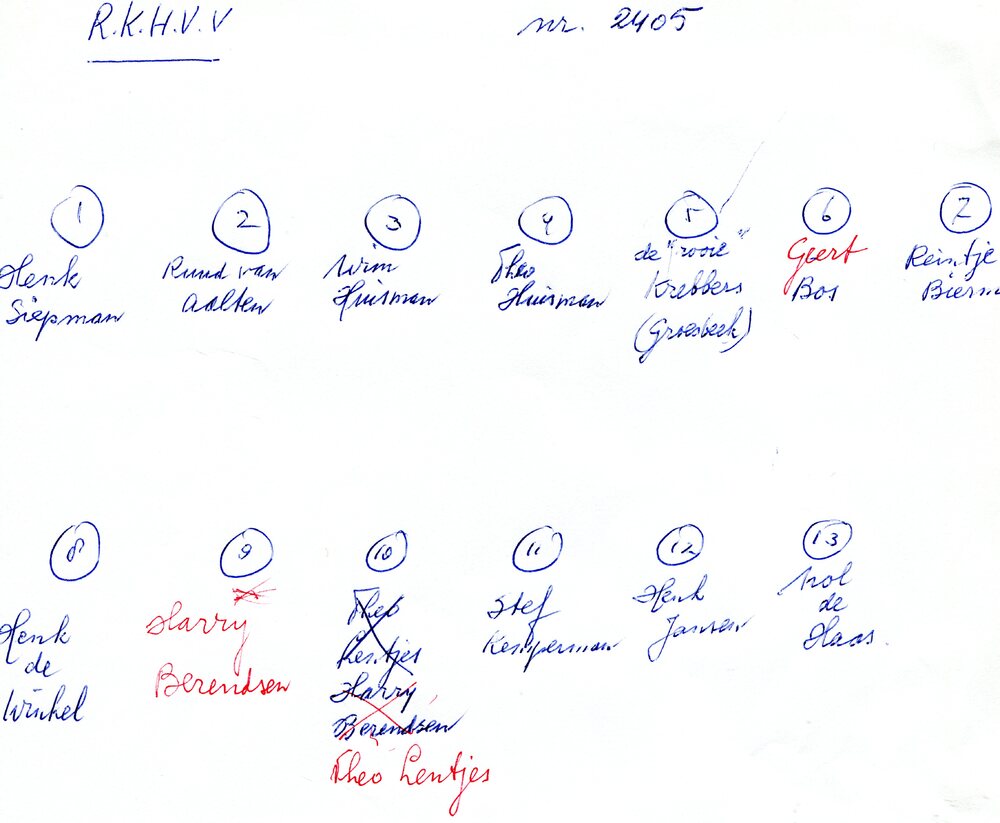 R.K.H.V.V nr. 2405
1 2 3 4 5 6 7
Henk Ruud van Wim Theo de "rooie" Geert Reintje
Siepman Aalten Huisman Huisman Krebbers Bos
(Groesbeek)
8 9 10 11 12 13
Henk Harry Theo Stef Henk Nol
de Berendsen Lentjes Kemperman Jansen de
Winkel Harry Haas.
Berendsen
Theo Lentjes